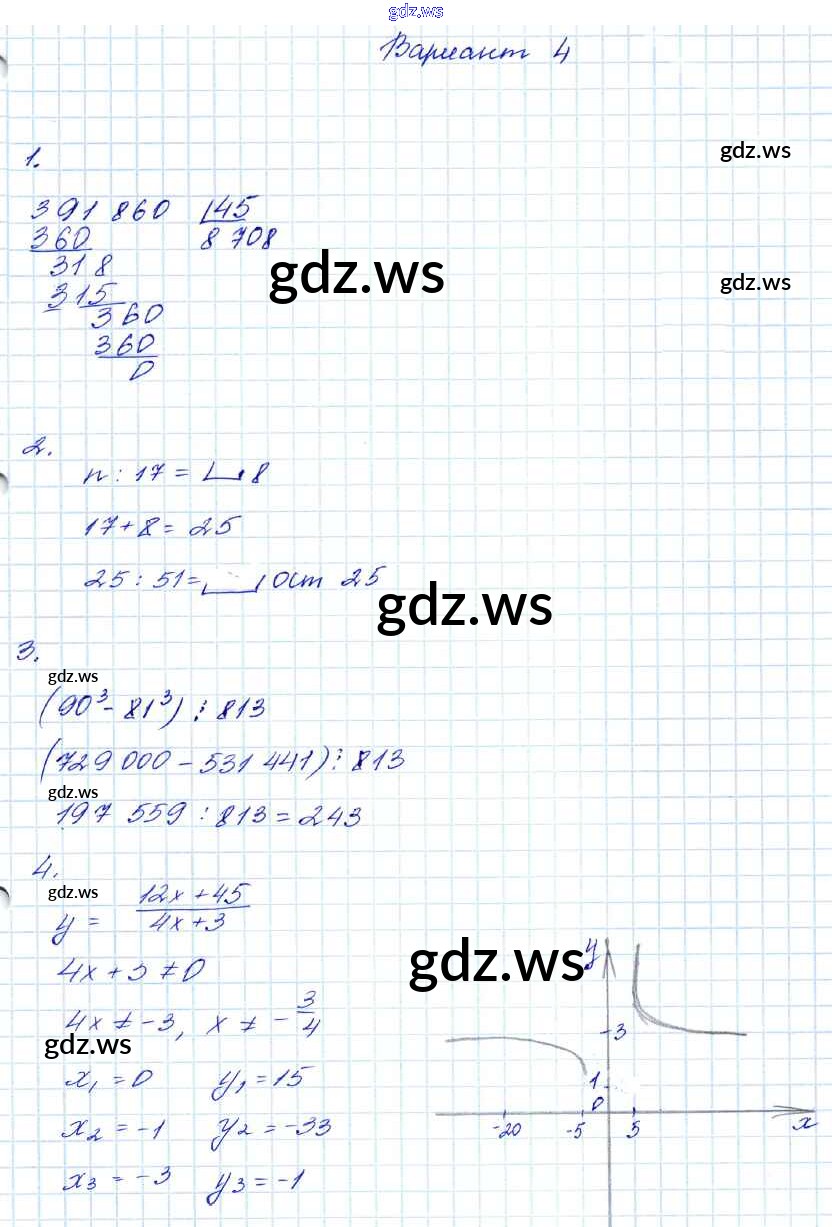 gdz.ws
Вариант 4
1.
gdz.ws
391 860 45
360 8 708
318
gdz.ws
gdz.ws
315
360
360
0
2.
n : 17 = 8
17 + 8 = 25
25 : 51 = Ост 25
gdz.ws
3.
gdz.ws
(90³ - 81³) ⋮ 813
(729 000 - 531 441) ⋮ 813
gdz.ws
197 559 : 813 = 243
4.
gdz.ws
y = (12x + 45)/(4x + 3)
gdz.ws
4x + 3 ≠ 0
4x ≠ -3, x ≠ -3/4
gdz.ws
x₁ = 0 y₁ = 15
x₂ = -1 y₂ = -33
x₃ = -3 y₃ = -1
y
3
1
0
-20 -5 5 x